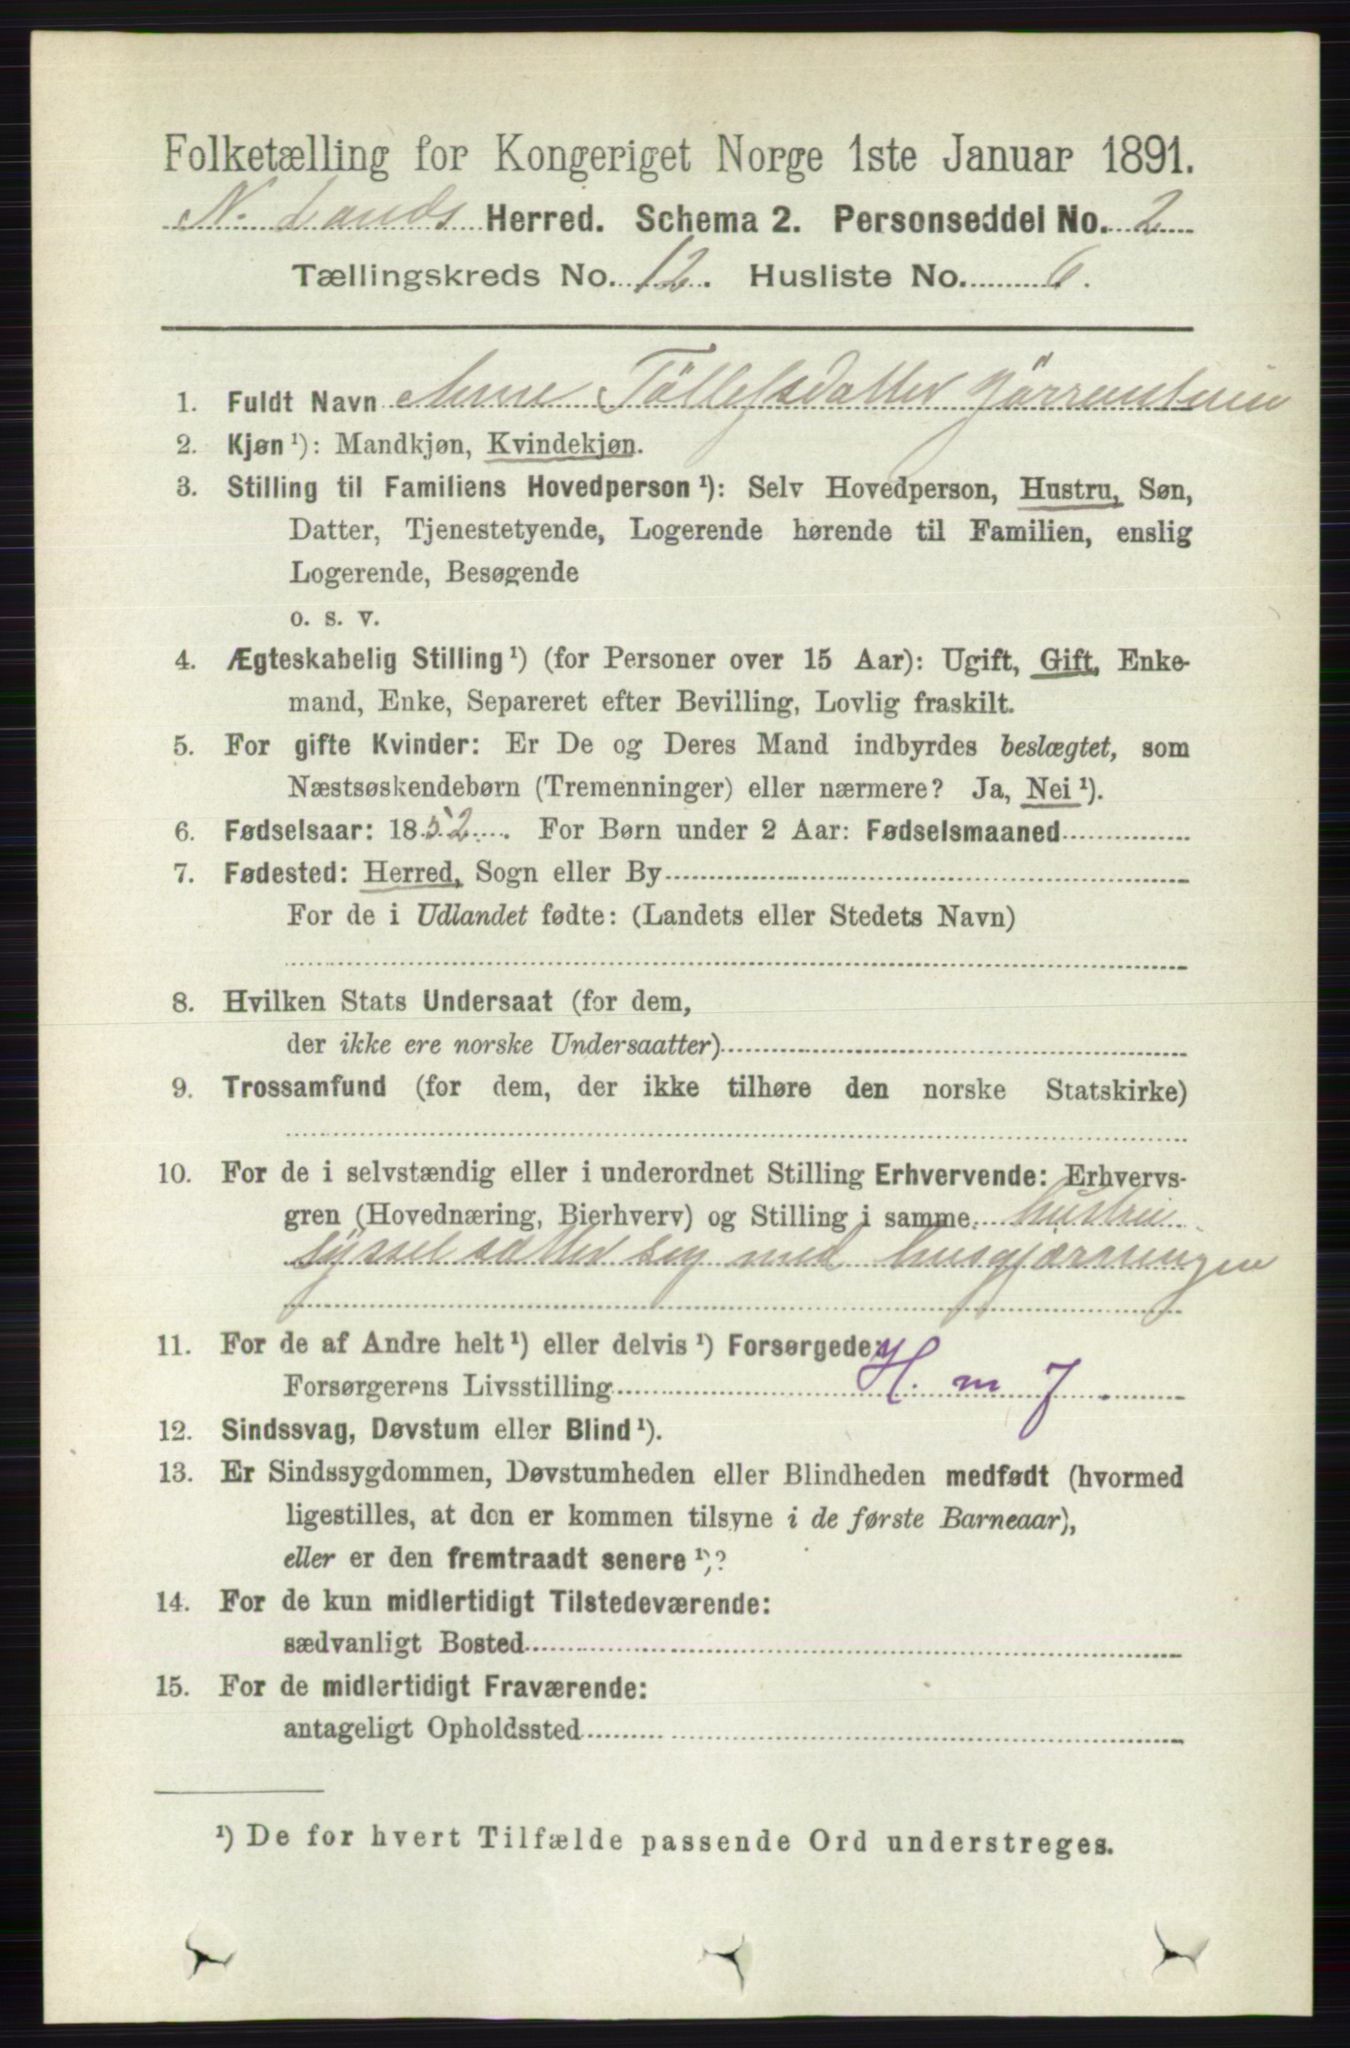 Folketælling for Kongeriget Norge 1ste Januar 1891.
N. Lands Herred. Schema 2. Personseddel No. 2
Tællingskreds No. 12. Husliste No. 6.
1. Fuldt Navn Anne Töllefsdatter
2. Kjøn ¹): Mandkjøn, Kvindekjøn.
3. Stilling til Familiens Hovedperson ¹): Selv Hovedperson, Hustru, Søn,
Datter, Tjenestetyende, Logerende hørende til Familien, enslig
Logerende, Besøgende
o. s. v.
4. Ægteskabelig Stilling ¹) (for Personer over 15 Aar): Ugift, Gift, Enke-
mand, Enke, Separeret efter Bevilling, Lovlig fraskilt.
5. For gifte Kvinder: Er De og Deres Mand indbyrdes beslægtet, som
Næstsøskendebørn (Tremenninger) eller nærmere? Ja, Nei ¹).
6. Fødselsaar: 1852. For Børn under 2 Aar: Fødselsmaaned
7. Fødested: Herred, Sogn eller By
For de i Udlandet fødte: (Landets eller Stedets Navn)
8. Hvilken Stats Undersaat (for dem,
der ikke ere norske Undersaatter)
9. Trossamfund (for dem, der ikke tilhøre den norske Statskirke)
10. For de i selvstændig eller i underordnet Stilling Erhvervende: Erhvervs-
gren (Hovednæring, Bierhverv) og Stilling i samme hustru
sysselsætter seg med husgjærningen
11. For de af Andre helt ¹) eller delvis ¹) Forsørgede:
Forsørgerens Livsstilling H. m 7
12. Sindssvag, Døvstum eller Blind ¹).
13. Er Sindssygdommen, Døvstumheden eller Blindheden medfødt (hvormed
ligestilles, at den er kommen tilsyne i de første Barneaar),
eller er den fremtraadt senere ¹)?
14. For de kun midlertidigt Tilstedeværende:
sædvanligt Bosted
15. For de midlertidigt Fraværende:
antageligt Opholdssted
¹) De for hvert Tilfælde passende Ord understreges.